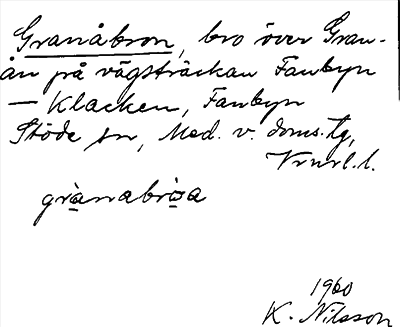 Granåbron, bro över Gran-
ån på vägsträckan Fanbyn
— Klacken, Fanbyn
Stöde sn, Med. v. doms. tg,
Vnrl. l.
grànabròa
1960
K. Nilsson